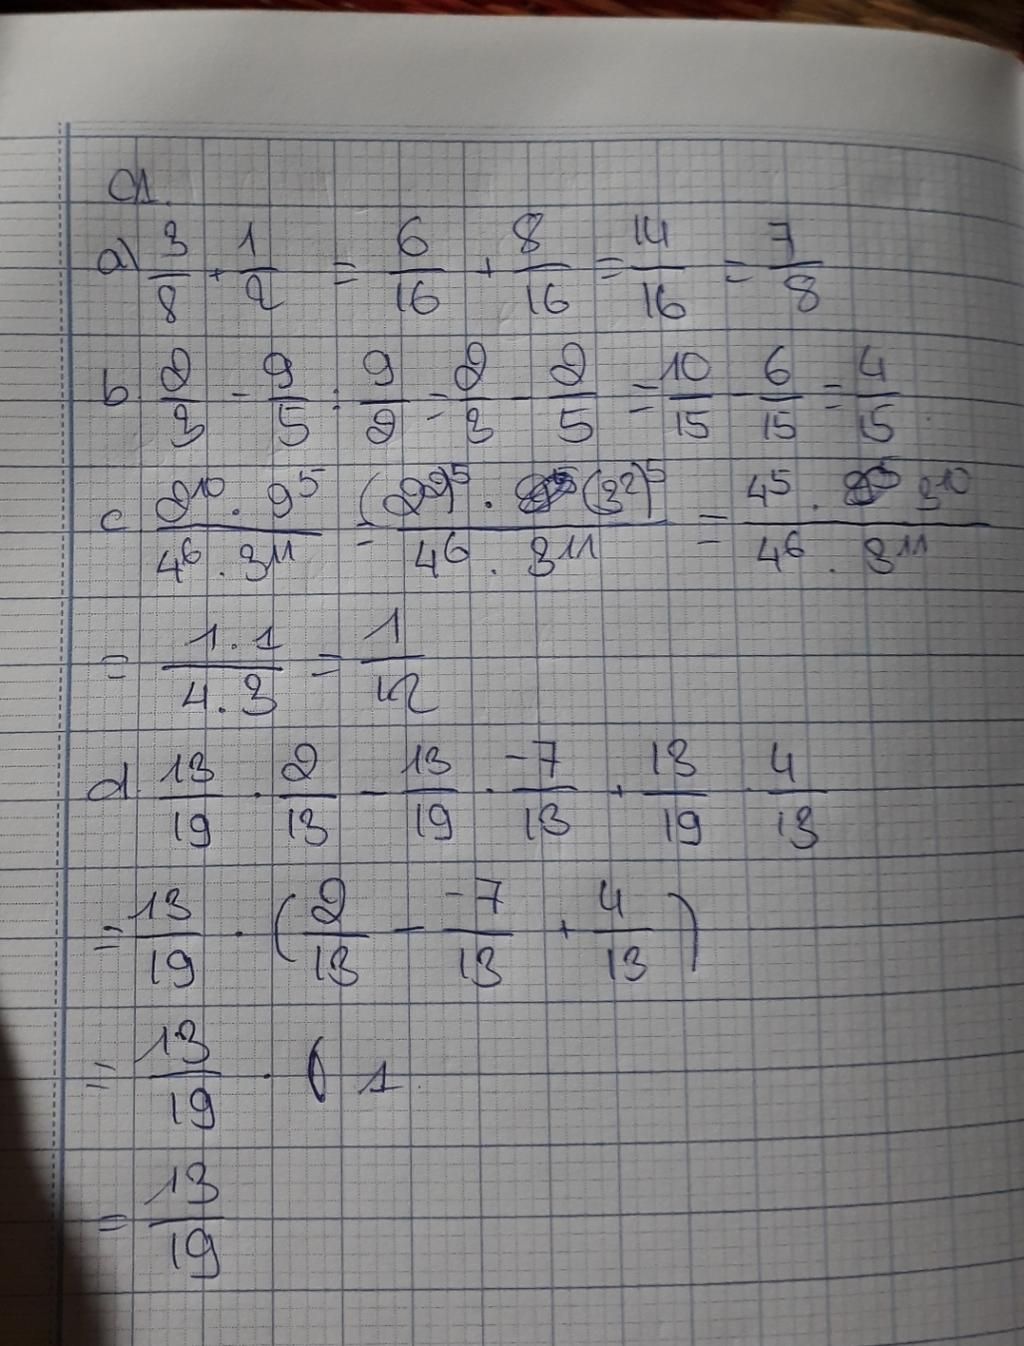 C1.
a) 3/8 + 1/2 = 6/16 + 8/16 = 14/16 = 7/8
b. 2/3 - 9/5 : 9/2 = 2/3 - 2/5 = 10/15 - 6/15 = 4/15
c (2^10 . 9^5)/(4^6 . 3^11) = ((2^2)^5 . (3^2)^5)/(4^6 . 3^11) = (4^5 . 3^10)/(4^6 . 3^11)
= (1.1)/(4.3) = 1/12
d. 13/19 . 2/13 - 13/19 . -7/13 + 13/19 . 4/13
= 13/19 . (2/13 - -7/13 + 4/13)
= 13/19 . 1
= 13/19